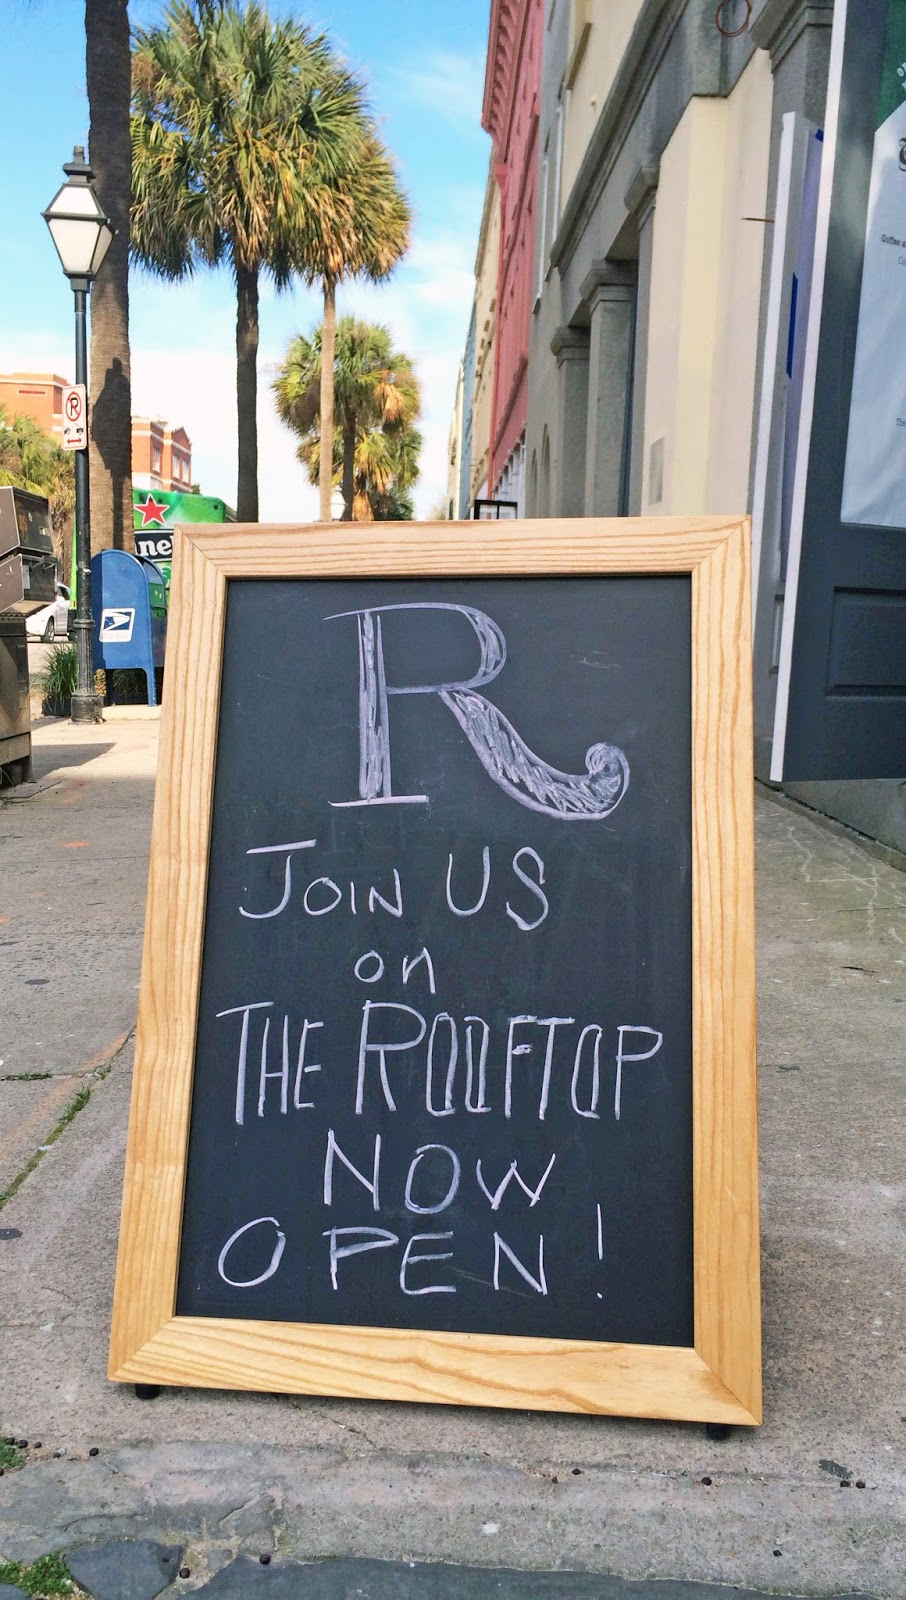 R
JOIN US
on
THE ROOFTOP
NOW
OPEN!
R
Coffee a